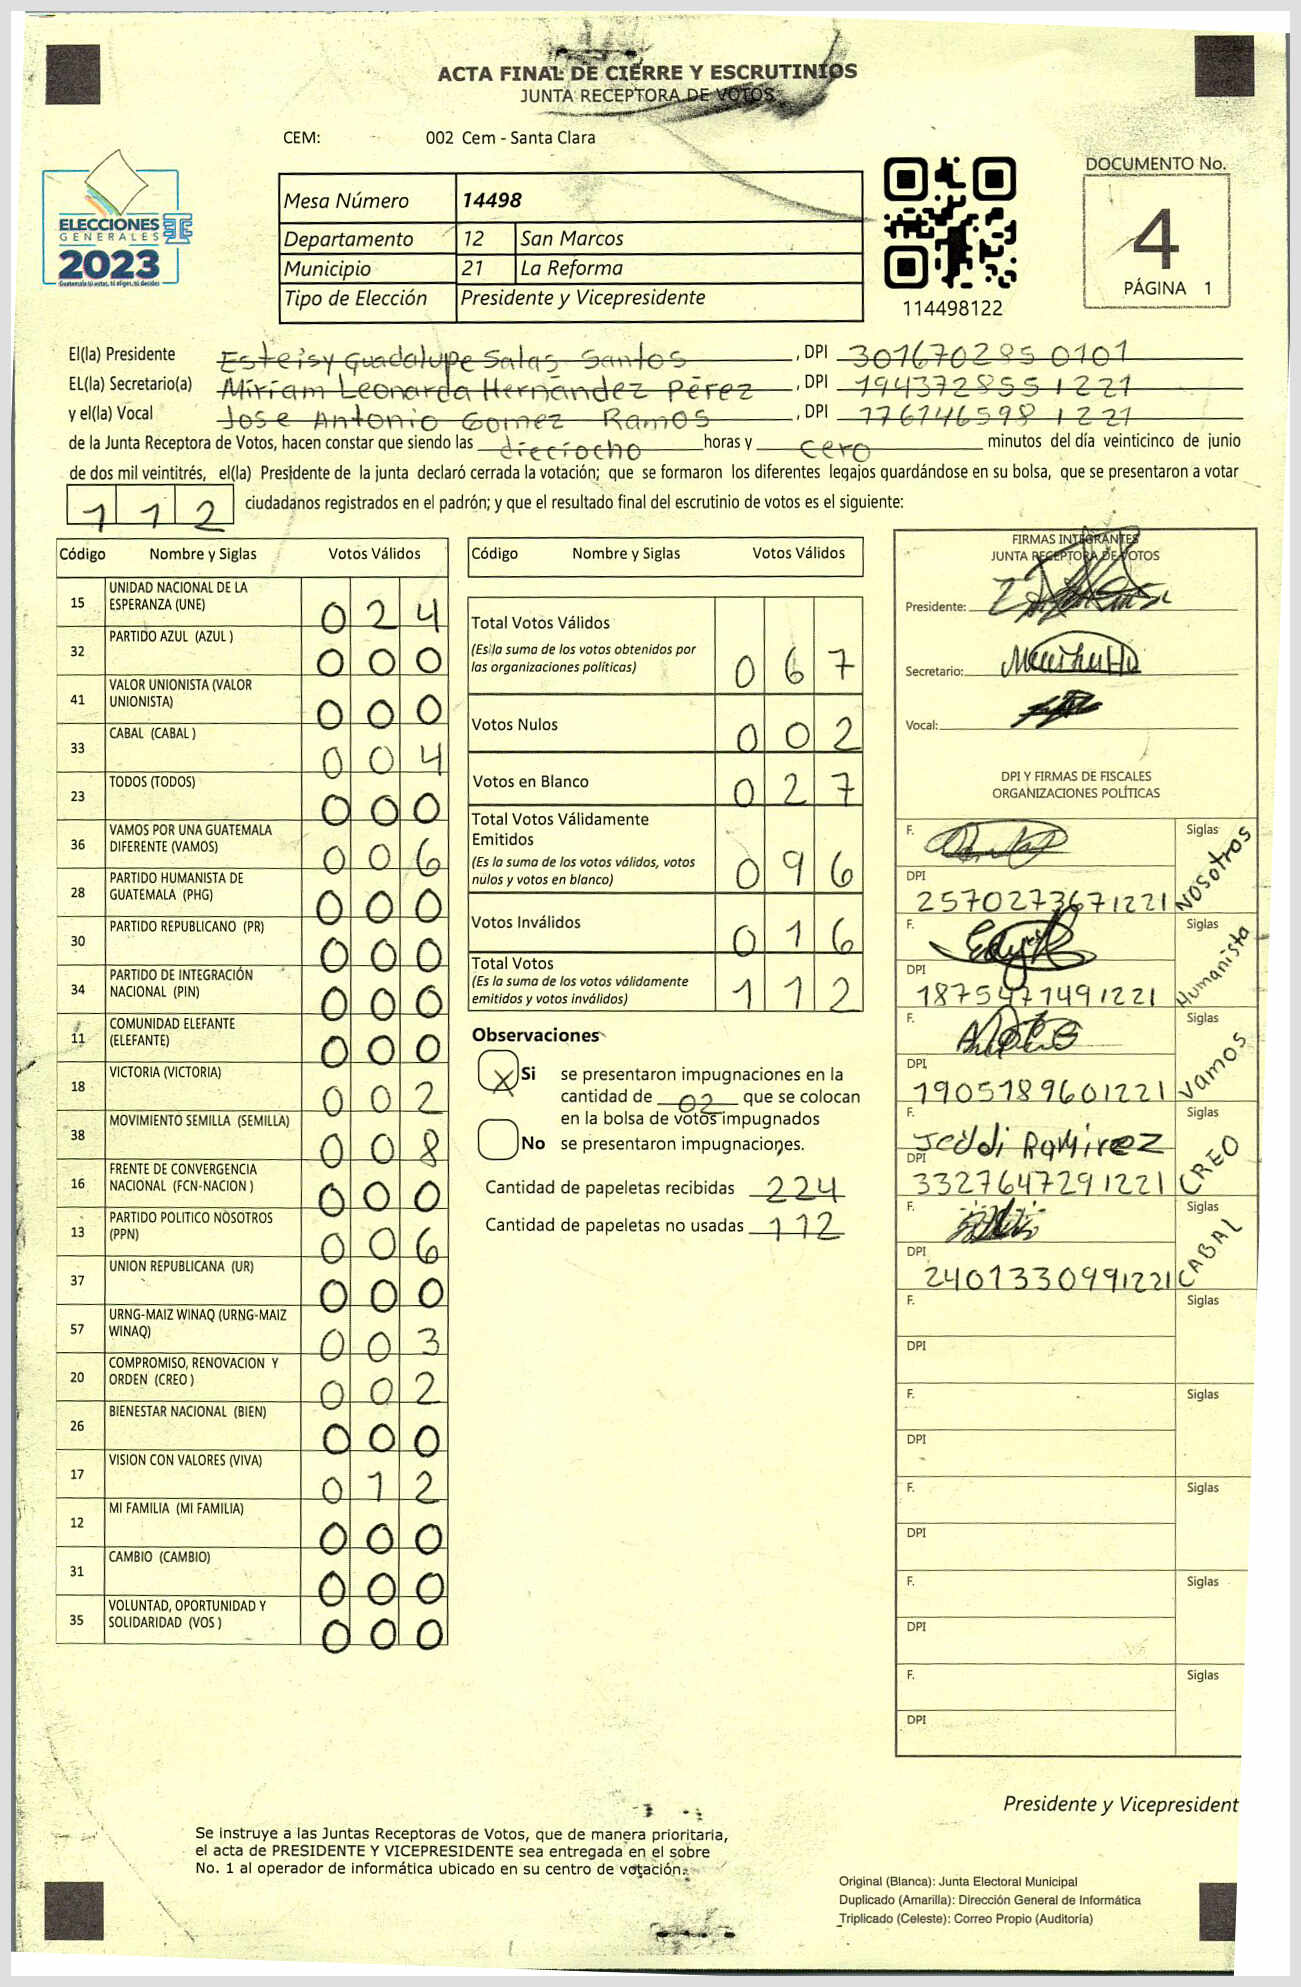 ACTA FINAL DE CIERRE Y ESCRUTINIOS
JUNTA RECEPTORA DE VOTOS
CEM: 002 Cem - Santa Clara
ELECCIONES
GENERALES
2023
Guatemala tú estas, tú eliges, tú decides
Mesa Número 14498
Departamento 12 San Marcos
Municipio 21 La Reforma
Tipo de Elección Presidente y Vicepresidente
114498122
DOCUMENTO No.
4
PÁGINA 1
El(la) Presidente Esteisy Guadalupe Salas Santos, DPI 301670285 0101
EL(la) Secretario(a) Miriam Leonarda Hernández Pérez, DPI 194372855 1221
y el(la) Vocal Jose Antonio Gomez Ramos, DPI 176146598 1221
de la Junta Receptora de Votos, hacen constar que siendo las dieciocho horas y cero minutos del día veinticinco de junio
de dos mil veintitrés, el(la) Presidente de la junta declaró cerrada la votación; que se formaron los diferentes legajos guardándose en su bolsa, que se presentaron a votar
112 ciudadanos registrados en el padrón; y que el resultado final del escrutinio de votos es el siguiente:
Código Nombre y Siglas Votos Válidos
15 UNIDAD NACIONAL DE LA
ESPERANZA (UNE) 024
32 PARTIDO AZUL (AZUL ) 000
41 VALOR UNIONISTA (VALOR
UNIONISTA) 000
33 CABAL (CABAL ) 004
23 TODOS (TODOS) 000
36 VAMOS POR UNA GUATEMALA
DIFERENTE (VAMOS) 006
28 PARTIDO HUMANISTA DE
GUATEMALA (PHG) 000
30 PARTIDO REPUBLICANO (PR) 000
34 PARTIDO DE INTEGRACIÓN
NACIONAL (PIN) 000
11 COMUNIDAD ELEFANTE
(ELEFANTE) 000
18 VICTORIA (VICTORIA) 002
38 MOVIMIENTO SEMILLA (SEMILLA) 008
16 FRENTE DE CONVERGENCIA
NACIONAL (FCN-NACION ) 000
13 PARTIDO POLITICO NOSOTROS
(PPN) 006
37 UNION REPUBLICANA (UR) 000
57 URNG-MAIZ WINAQ (URNG-MAIZ
WINAQ) 003
20 COMPROMISO, RENOVACION Y
ORDEN (CREO ) 002
26 BIENESTAR NACIONAL (BIEN) 000
17 VISION CON VALORES (VIVA) 012
12 MI FAMILIA (MI FAMILIA) 000
31 CAMBIO (CAMBIO) 000
35 VOLUNTAD, OPORTUNIDAD Y
SOLIDARIDAD (VOS ) 000
Código Nombre y Siglas Votos Válidos
Total Votos Válidos
(Es la suma de los votos obtenidos por
las organizaciones políticas) 067
Votos Nulos 002
Votos en Blanco 027
Total Votos Válidamente
Emitidos
(Es la suma de los votos válidos, votos
nulos y votos en blanco) 096
Votos Inválidos 016
Total Votos
(Es la suma de los votos válidamente
emitidos y votos inválidos) 112
Observaciones
X Si se presentaron impugnaciones en la
cantidad de 02 que se colocan
en la bolsa de votos impugnados
No se presentaron impugnaciones.
Cantidad de papeletas recibidas 224
Cantidad de papeletas no usadas 112
FIRMAS INTEGRANTES
JUNTA RECEPTORA DE VOTOS
Presidente:
Secretario:
Vocal:
DPI Y FIRMAS DE FISCALES
ORGANIZACIONES POLÍTICAS
F. Siglas
DPI 2570273671221 Nosotros
F. Siglas
DPI 1875471491221 Humanista
F. Siglas
DPI 1905189601221 Vamos
F. Jeddi Ramirez Siglas
DPI 3327647291221 CREO
F. Siglas
DPI 2401330991221 CABAL
F. Siglas
DPI
F. Siglas
DPI
F. Siglas
DPI
F. Siglas
DPI
F. Siglas
DPI
Presidente y Vicepresident
Se instruye a las Juntas Receptoras de Votos, que de manera prioritaria,
el acta de PRESIDENTE Y VICEPRESIDENTE sea entregada en el sobre
No. 1 al operador de informática ubicado en su centro de votación.
Original (Blanca): Junta Electoral Municipal
Duplicado (Amarilla): Dirección General de Informática
Triplicado (Celeste): Correo Propio (Auditoría)